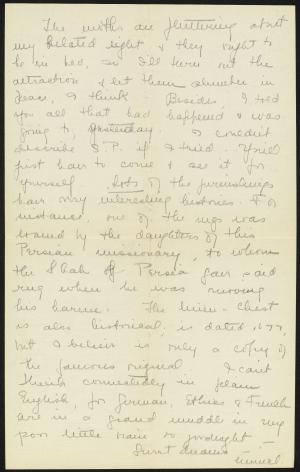 The moths are fluttering about
my belated light & they ought to
be in bed, so I'll turn out the
attraction & let them slumber in
peace, I think. Besides, I told
you all that had happened & was
going to, yesterday. I couldn't
describe S.P. if I tried. You'll
just have to come & see it for
yourself. Lots of the furnishings
have very interesting histories. For
instance, one of the rugs was
loaned by the daughters of this
Persian missionary, to whom
the Shah of Persia gave said
rug when he was moving
his harem. The linen-chest
is also historical, is dated 1677,
but I believe is only a copy of
the famous original. I can't
think connectedly in plain
English, for German, Ethics & French
are in a grand muddle in my
poor little brain to-night —
Sweet dreams